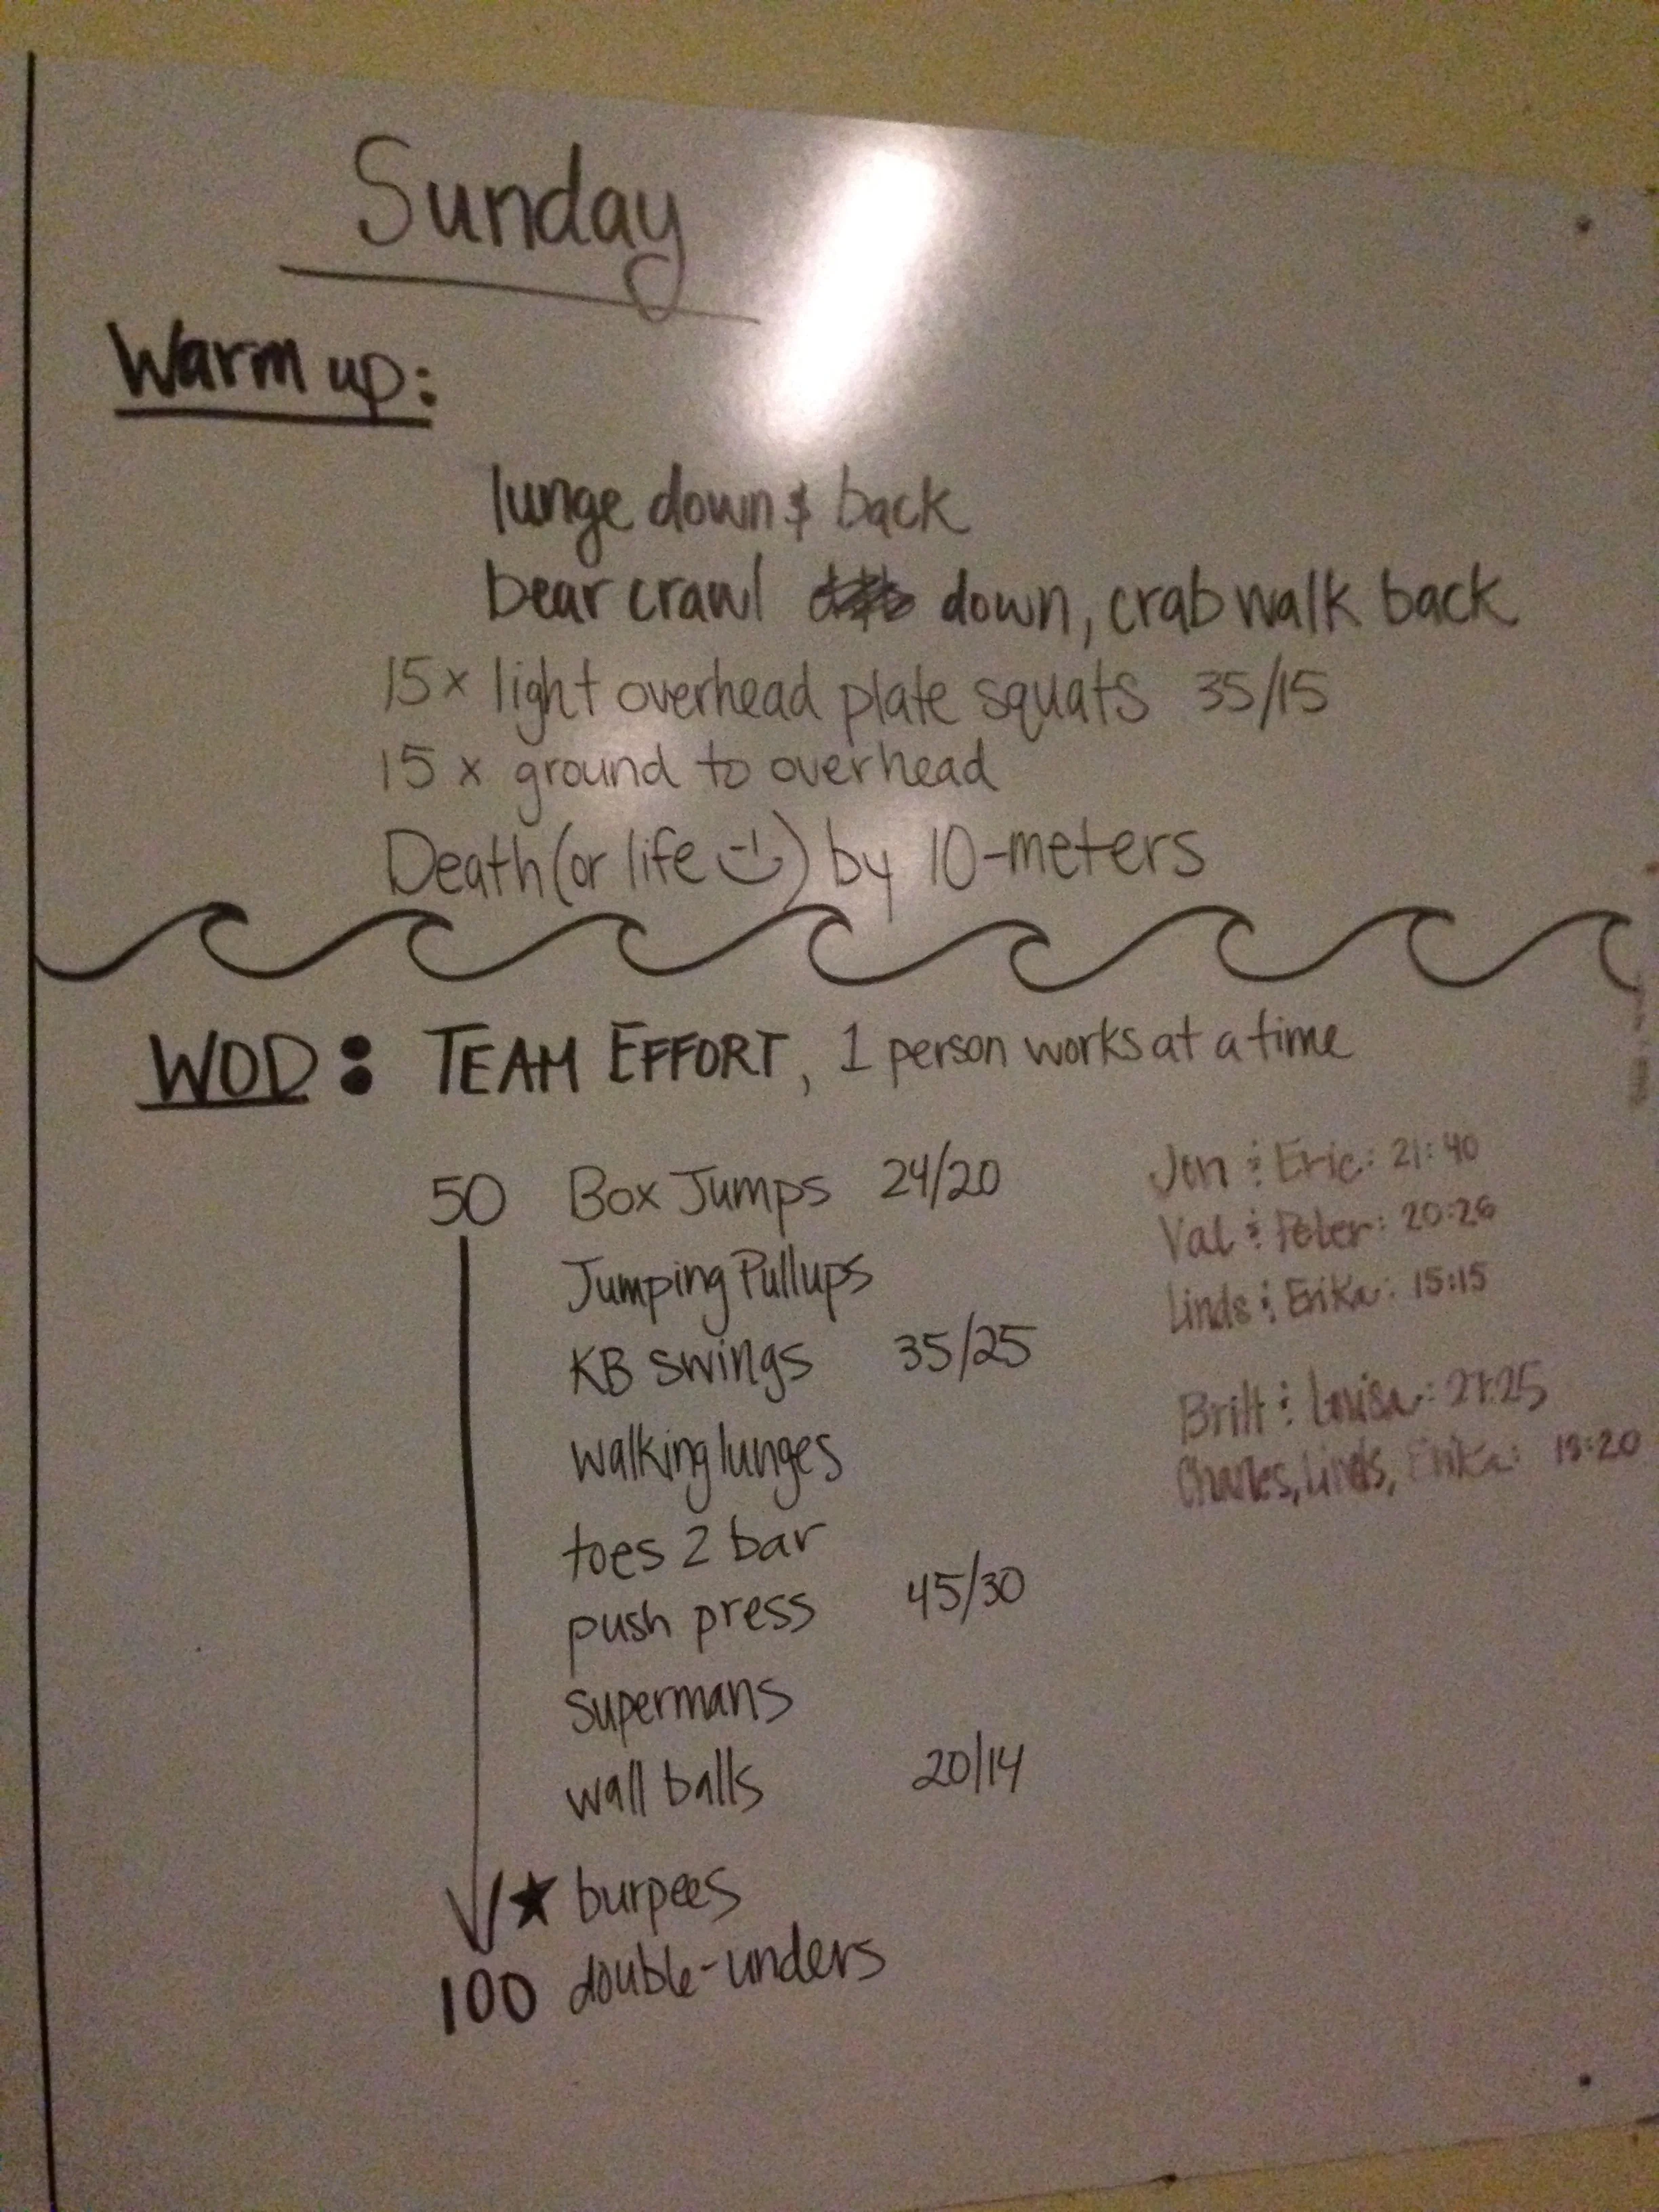 Sunday
Warm up:
lunge down & back
bear crawl down, crab walk back
15x light overhead plate squats 35/15
15 x ground to overhead
Death (or life) by 10-meters
WOD: TEAM EFFORT, 1 person works at a time
50 Box Jumps 24/20
Jumping Pullups
KB swings 35/25
walking lunges
toes 2 bar
push press 45/30
supermans
wall balls 20/14
★ burpees
100 double-unders
Jon & Eric: 21:40
Val & Peter: 20:26
Linds & Erika: 15:15
Britt & Louisa:
Charles, Linds, Erika: